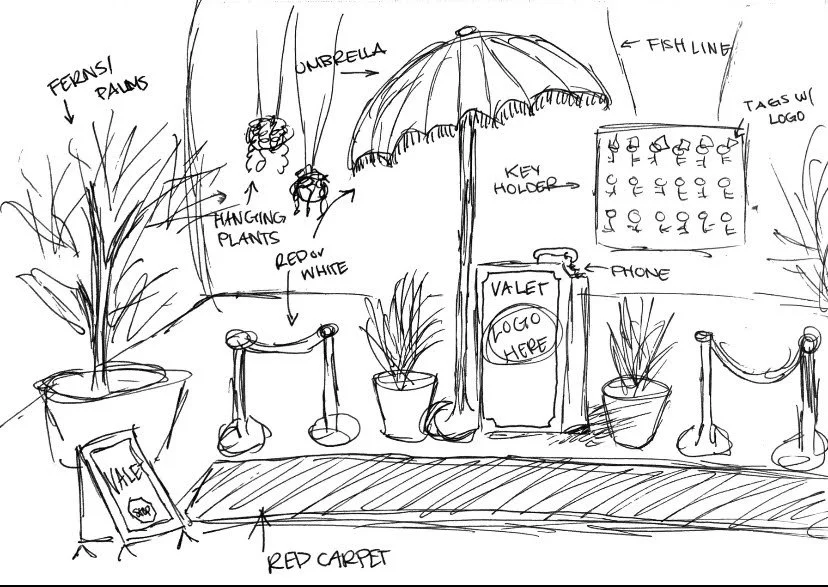 UMBRELLA
FISHLINE
FERNS/
PALMS
TAGS W/
LOGO
KEY
HOLDER
HANGING
PLANTS
RED or
WHITE
PHONE
VALET
LOGO
HERE
VALET
STOP
RED CARPET